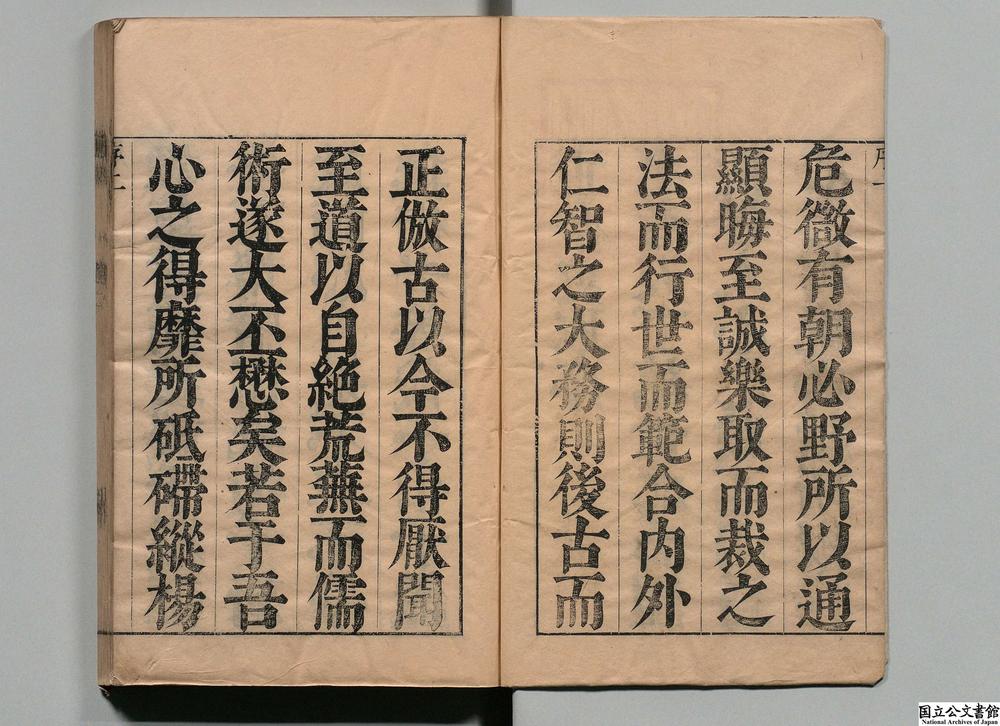 危微有朝必野所以通
顯晦至誠樂取而裁之
法而行世而範合內外
仁智之大務則後古而
正倣古以今不得厭聞
至道以自絶荒蕪而儒
術遂大丕懋矣若于吾
心之得靡所砥礪縱楊
国立公文書館
National Archives of Japan